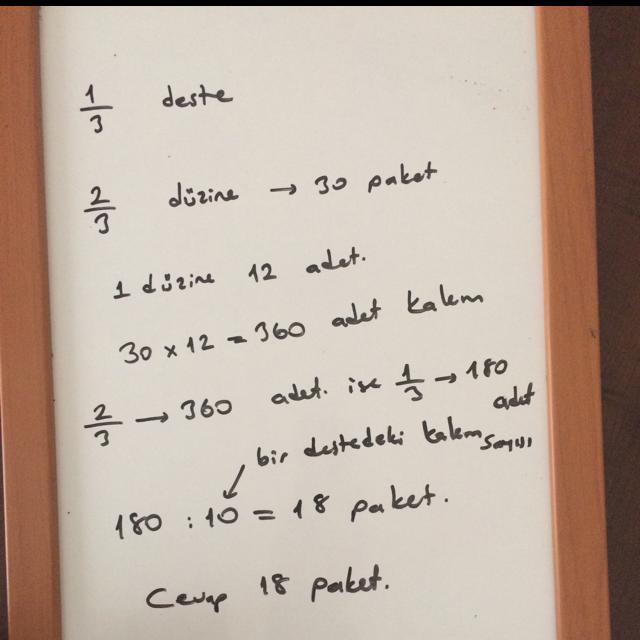 1/3 deste
2/3 düzine → 30 paket
1 düzine 12 adet.
30 x 12 = 360 adet kalem
2/3 → 360 adet. ise 1/3 → 180 adet
bir destedeki kalem sayısı
180 : 10 = 18 paket.
Cevap 18 paket.